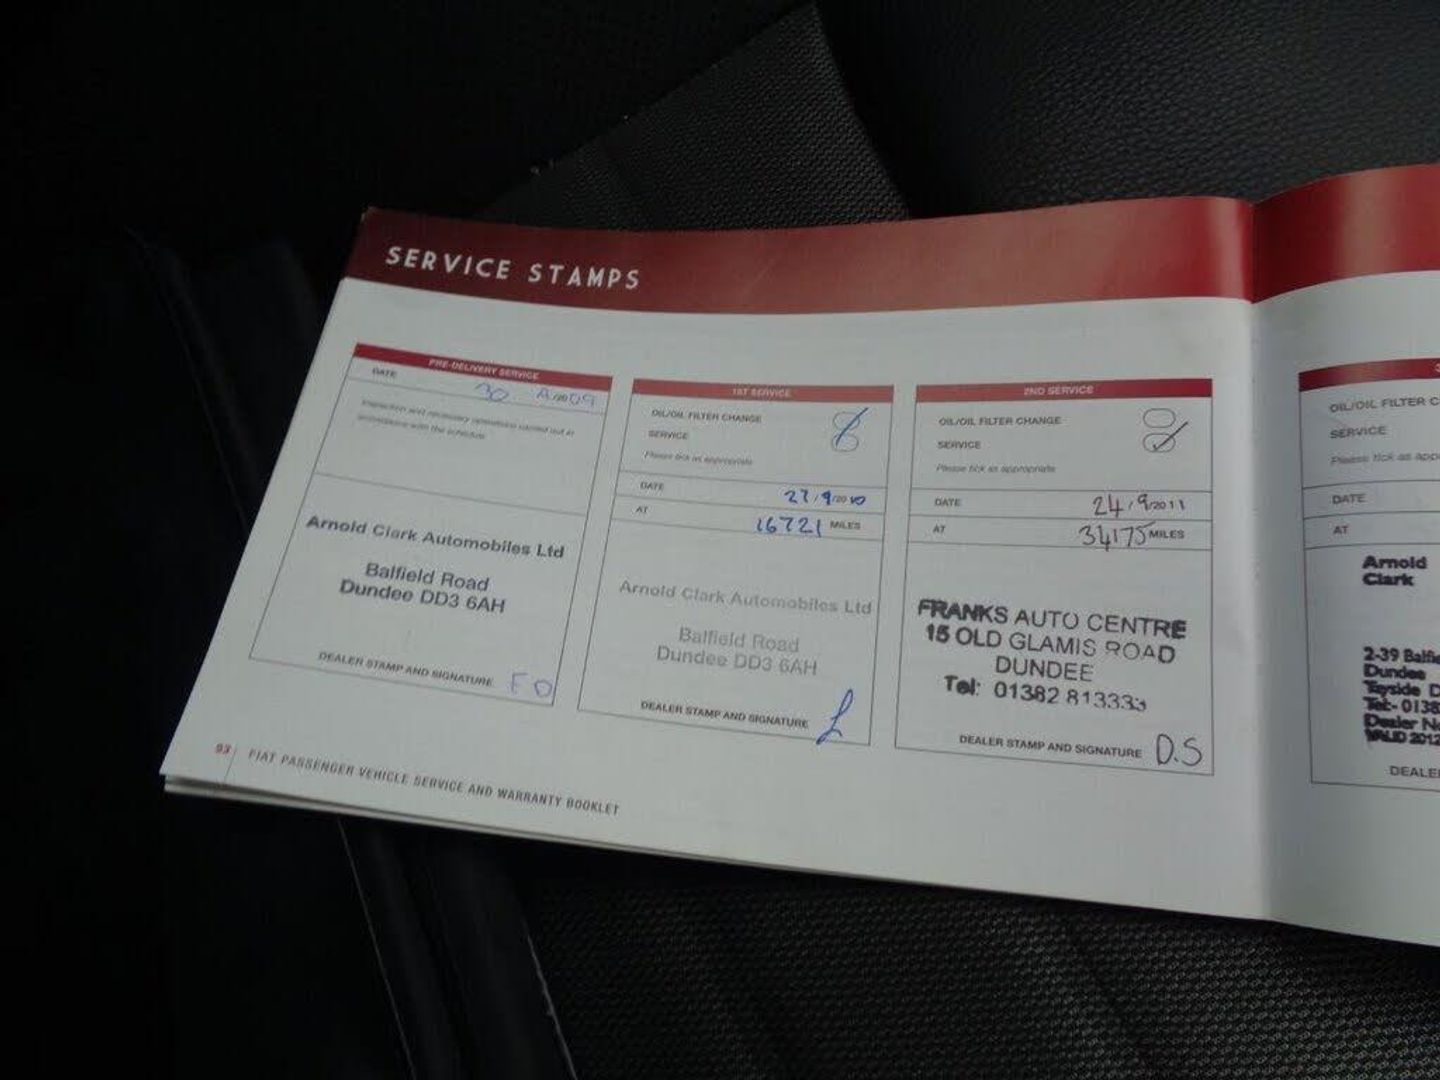 SERVICE STAMPS
PRE-DELIVERY SERVICE
DATE 30 A/2009
Inspection and necessary operations carried out in
accordance with the schedule
Arnold Clark Automobiles Ltd
Balfield Road
Dundee DD3 6AH
DEALER STAMP AND SIGNATURE FD
1ST SERVICE
OIL/OIL FILTER CHANGE
SERVICE
Please tick as appropriate
DATE 27/9/2010
AT 16721 MILES
Arnold Clark Automobiles Ltd
Balfield Road
Dundee DD3 6AH
DEALER STAMP AND SIGNATURE
2ND SERVICE
OIL/OIL FILTER CHANGE
SERVICE
Please tick as appropriate
DATE 24/9/2011
AT 34175 MILES
FRANKS AUTO CENTRE
15 OLD GLAMIS ROAD
DUNDEE
Tel: 01382 813333
DEALER STAMP AND SIGNATURE D.S
93 FIAT PASSENGER VEHICLE SERVICE AND WARRANTY BOOKLET
OIL/OIL FILTER C
SERVICE
Please tick as app
DATE
AT
Arnold
Clark
2-39 Balfie
Dundee
Tayside D
Tel:- 0138
Dealer No
VALID 2012
DEALE